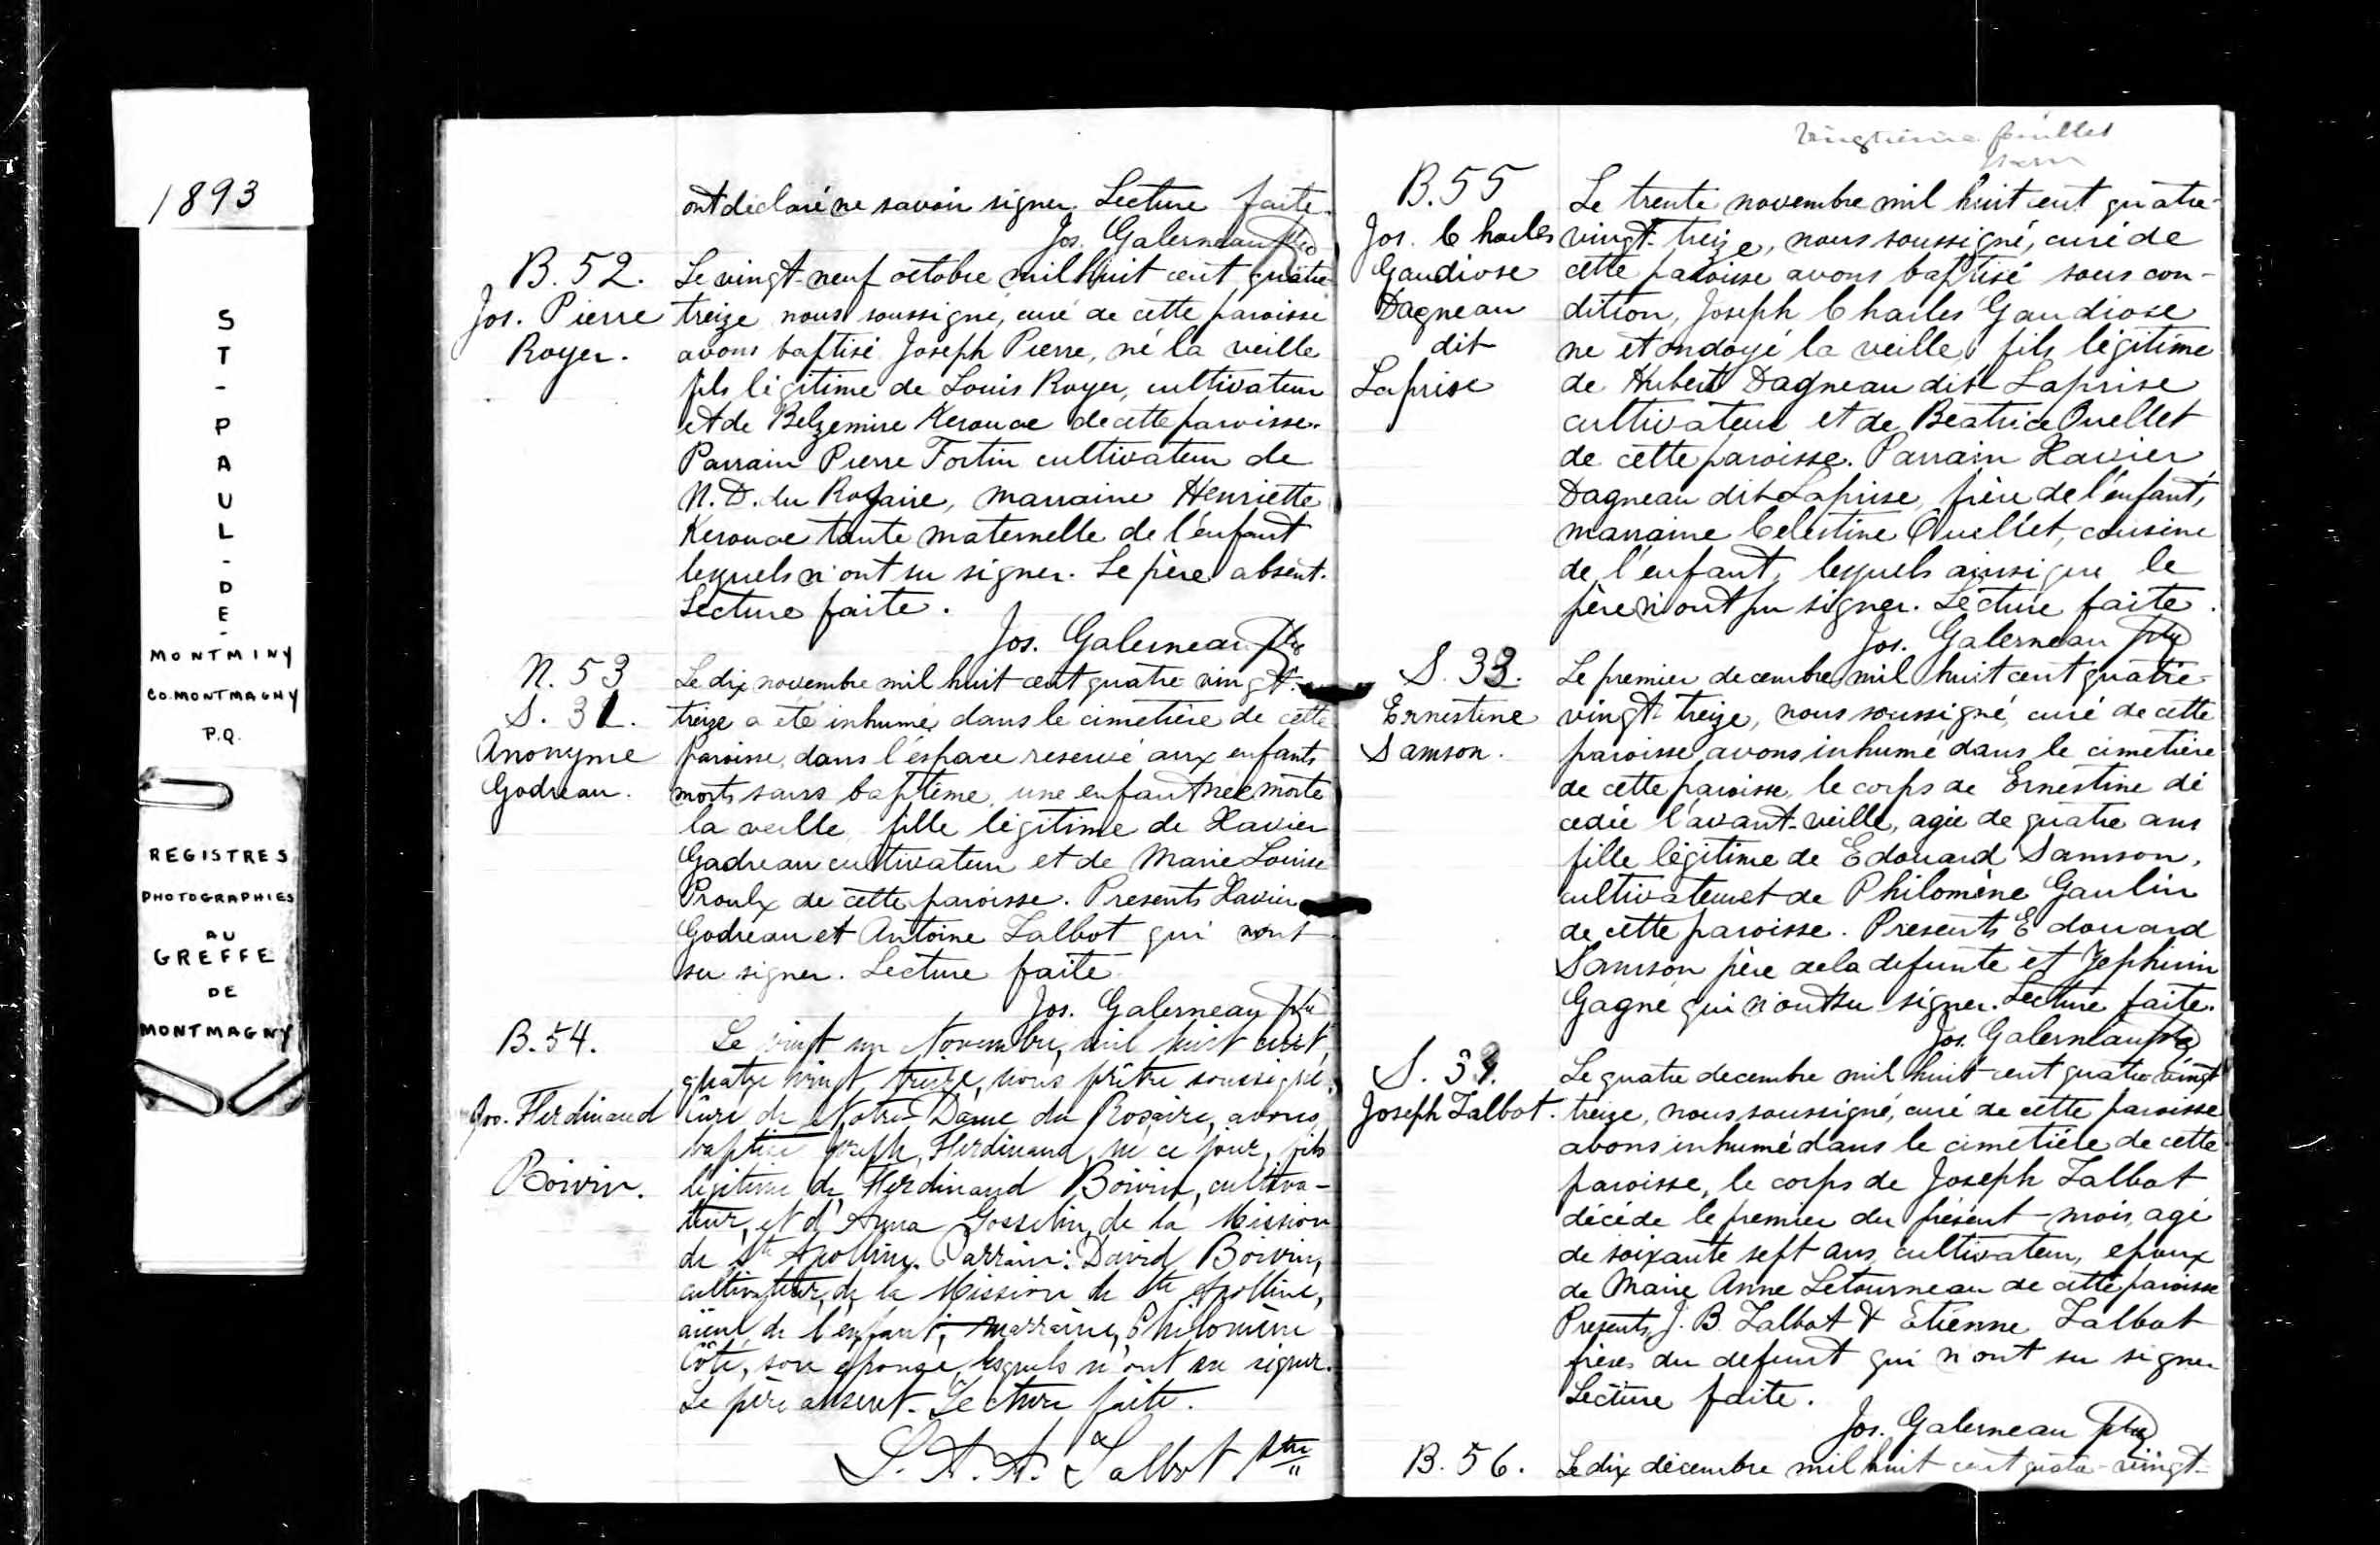 1893
ST-PAUL-DE-
MONTMINY
CO. MONTMAGNY
P.Q.
REGISTRES
PHOTOGRAPHIES
AU
GREFFE
DE
MONTMAGNY
ont déclaré ne savoir signer. Lecture faite.
Jos. Galerneau Ptre
B. 52.
Jos. Pierre
Royer.
Le vingt-neuf octobre mil huit cent quatre
treize nous soussigné, curé de cette paroisse
avons baptisé Joseph Pierre, né la veille
fils légitime de Louis Royer, cultivateur
et de Belzemire Kerouac de cette paroisse.
Parrain Pierre Fortin cultivateur de
N. D. du Rosaire, marraine Henriette
Kerouac tante maternelle de l'enfant
lesquels n'ont su signer. Le père absent.
Lecture faite.
Jos. Galerneau Ptre
N. 53
S. 31.
Anonyme
Godreau.
Le dix novembre mil huit cent quatre-vingt-
treize a été inhumé dans le cimetière de cette
paroisse, dans l'espace reservé aux enfants
morts sans baptême, une enfant née morte
la veille fille légitime de Xavier
Gadreau cultivateur et de Marie Louise
Proulx de cette paroisse. Presents Xavier
Godreau et Antoine Talbot qui n'ont
su signer. Lecture faite
Jos. Galerneau Ptre
B. 54.
Jos. Ferdinand
Boivin.
Le vingt un Novembre, mil huit cent,
quatre vingt, treize, nous prêtre soussigné,
Curé de Notre-Dame du Rosaire, avons
baptisé Joseph, Ferdinand, né ce jour, fils
légitime de Ferdinand Boivin, cultiva-
teur, et d'Anna Gosselin, de la Mission
de Ste Apolline. Parrain: David Boivin,
cultivateur, de la Mission de Ste Apolline,
aïeul de l'enfant; marraine, Philomène
Côté, son épouse, lesquels n'ont su signer.
Le père absent. Lecture faite.
L. A. A. Talbot Ptre
Vingtième feuillet
B. 55
Jos. Charles
Gaudiose
Dagneau
dit
Laprise
Le trente novembre mil huit cent quatre-
vingt-treize, nous soussigné, curé de
cette paroisse avons baptisé sous con-
dition, Joseph Charles Gaudiose
né et ondoyé la veille, fils légitime
de Hubert Dagneau dit Laprise
cultivateur et de Béatrice Ouellet
de cette paroisse. Parrain Xavier
Dagneau dit Laprise, frère de l'enfant,
marraine Celestine Ouellet, cousine
de l'enfant, lesquels ainsi que le
père n'ont pu signer. Lecture faite.
Jos. Galerneau ptre
S. 33.
Ernestine
Samson.
Le premier decembre mil huit cent quatre-
vingt-treize, nous soussigné, curé de cette
paroisse avons inhumé dans le cimetière
de cette paroisse, le corps de Ernestine dé
cedée l'avant-veille, agée de quatre ans
fille légitime de Edouard Samson,
cultivateur et de Philomène Gaulin
de cette paroisse. Presents Edouard
Samson père de la defunte et Zephirin
Gagné qui n'ont su signer. Lecture faite.
Jos. Galerneau ptre
S. 34.
Joseph Talbot.
Le quatre decembre mil huit cent quatre-vingt
treize, nous soussigné, curé de cette paroisse
avons inhumé dans le cimetière de cette
paroisse, le corps de Joseph Talbot
décédé le premier du présent mois, agé
de soixante sept ans, cultivateur, epoux
de Marie Anne Letourneau de cette paroisse
Presents J. B. Talbot & Etienne Talbot
frères du defunt qui n'ont su signer
Lecture faite.
Jos. Galerneau Ptre
B. 56.
Le dix décembre mil huit cent quatre-vingt-